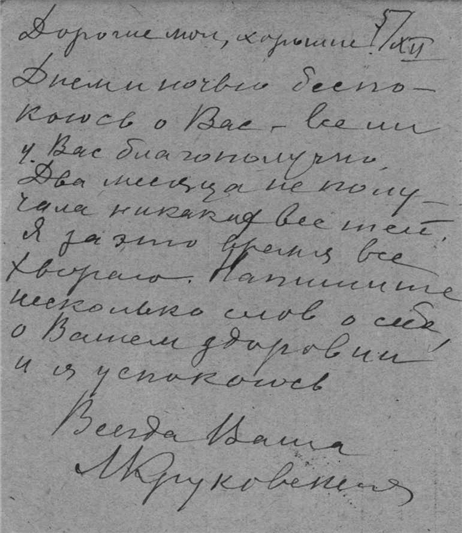 Дорогие мои, хорошие! 5/XII
Днем и ночью беспо-
коюсь о Вас – все ли
у Вас благополучно.
Два месяца не полу-
чала никаких вестей.
Я за это время все
хвораю. Напишите
несколько слов о себе,
о Вашем здоровии
и я успокоюсь
Всегда Ваша
МКруковская